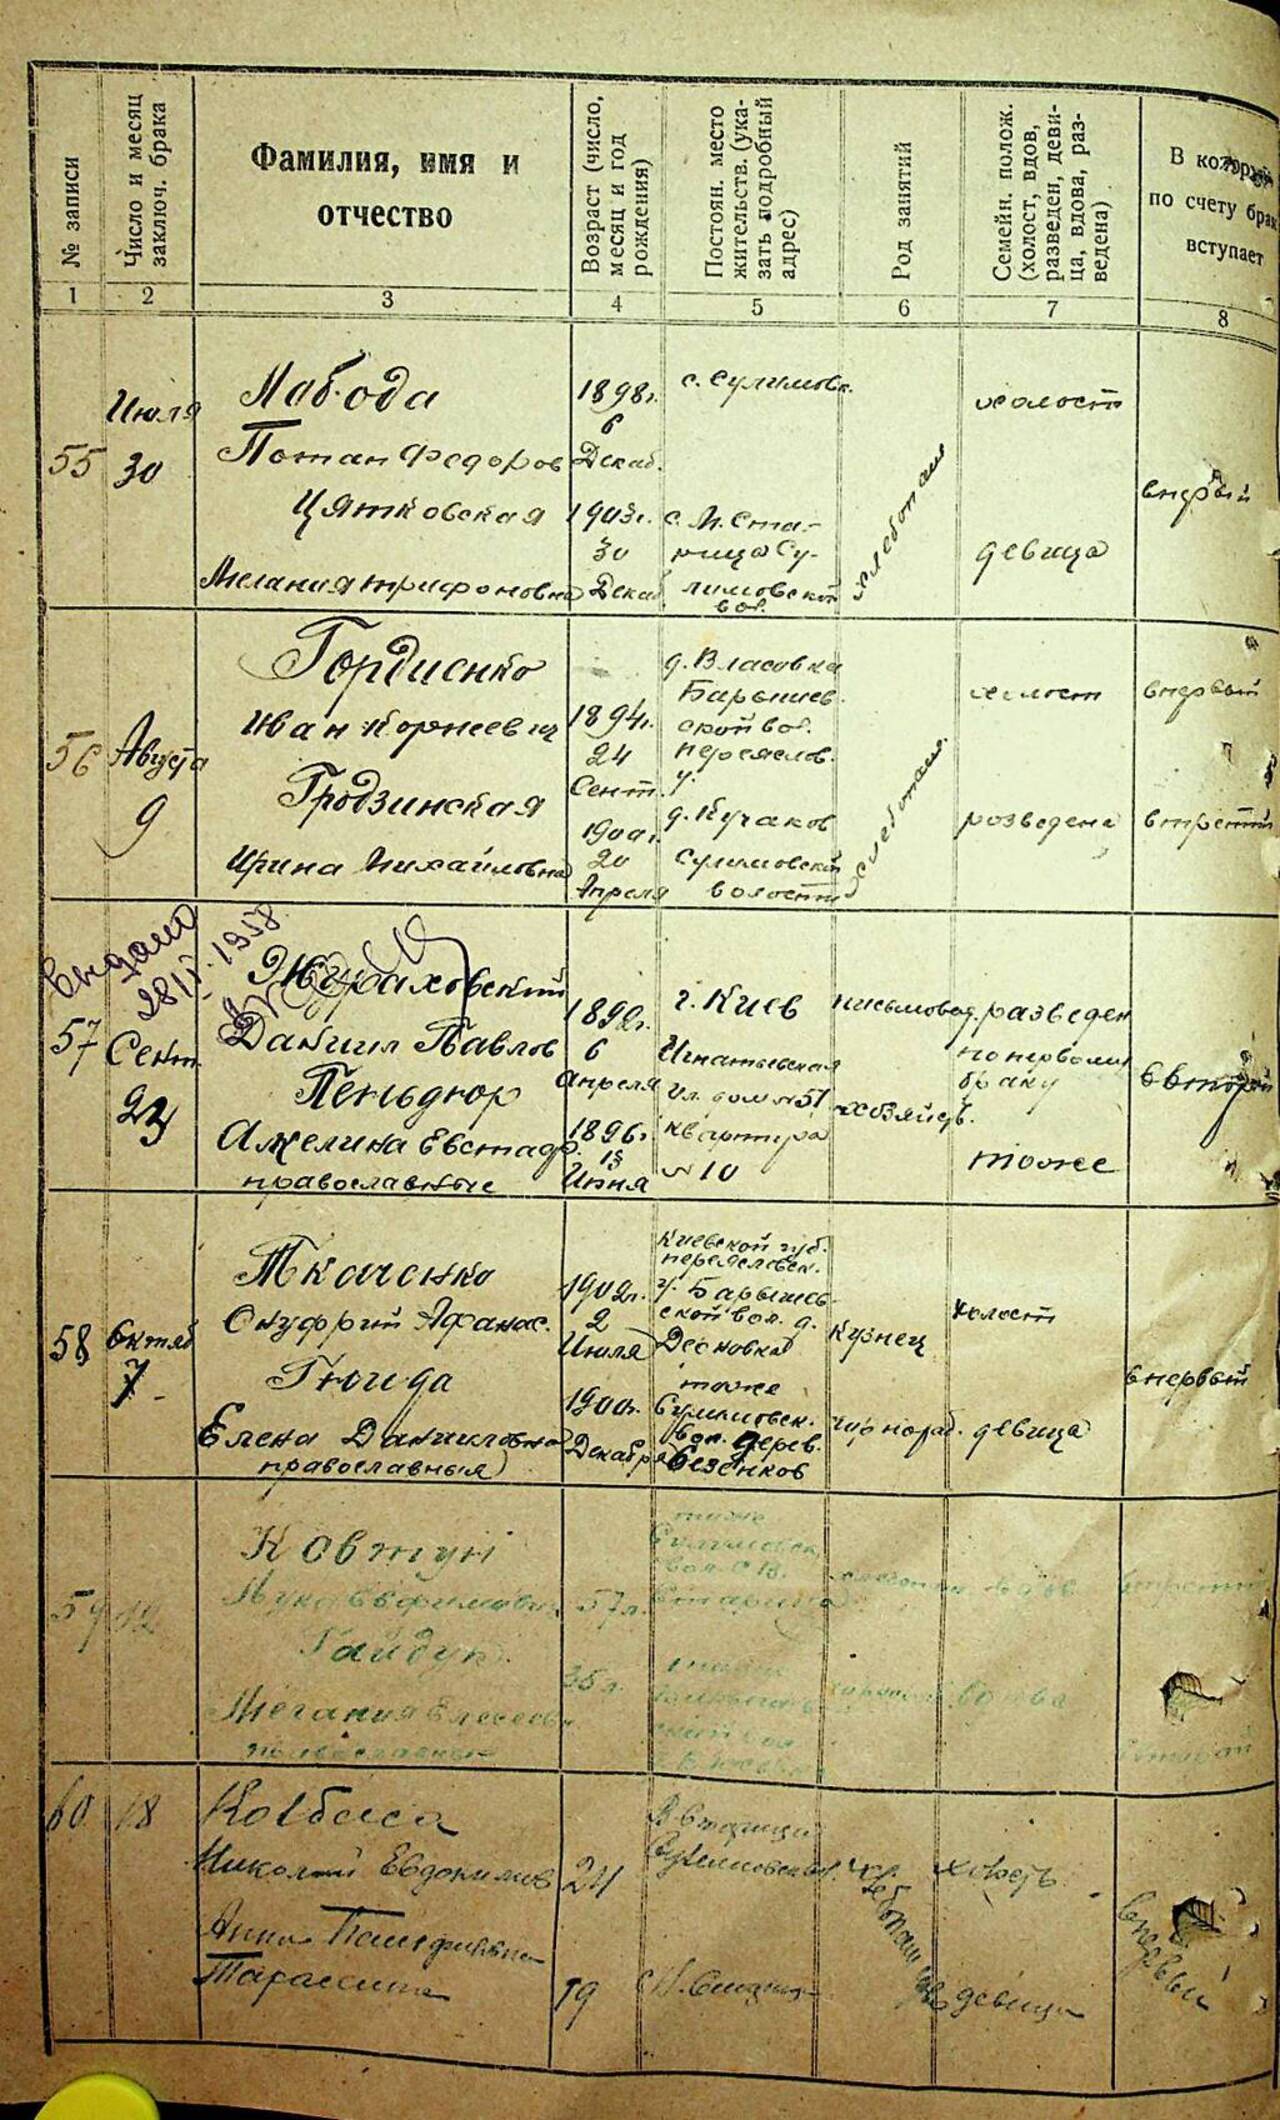 № записи
Число и месяц
заключ. брака
Фамилия, имя и
отчество
Возраст (число,
месяц и год
рождения)
Постоян. место
жительств. (ука-
зать подробный
адрес)
Род занятий
Семейн. полож.
(холост, вдов,
разведен, деви-
ца, вдова, раз-
ведена)
В который
по счету брак
вступает
1 2 3 4 5 6 7 8
55
Июля
30
Лобода
Потап Федоров
Цятковская
Мелания Трифоновна
1898г.
6
Декаб.
1903г.
30
Декаб
с. Сулимовк.
с. М. Ста-
рица Су-
лимовской
вол.
хлебопаш
холост
девица
впервый
56
Августа
9
Гордиенко
Иван Корнеевич
Гродзинская
Ирина Михайловна
1894г.
24
Сент.
1900г.
20
Апреля
д. Власовка
Барышев
ской вол.
переяслов.
у.
д. Кучаков
Сулимовской
волости
хлебопаш.
холост
розведена
впервый
втретий
Выдано
28/II.1958
57
Сент.
23
Жураховский
Даниил Павлов
Пеньдюр
Ажелина Евстаф.
православные
1892г.
6
апреля
1896г.
13
Июня
г. Киев
Игнатьевская
ул. дом №51
квартира
№10
письмовод.
хозяйств.
разведен
по первому
браку
тоже
вторый
58
Октяб
7-
Ткаченко
Онуфрий Афанас.
Гюида
Елена Даниловна
православныя
1902г.
2
Июля
1900г.
Декабря
Киевской губ.
переясловск.
у. Барышев-
ской вол. д.
Десновка
тоже
Сулимовск.
вол. дерев.
Безенков
Кузнец
чернораб.
холост
девица
впервый
59
12
Ковтун
Лука Евфимович
Гайдук
Мелания Елесеевн
православные
57л.
35л.
тоже
Сулимовск.
вол. с В.
Старица
вдов
вдова
втретий
вторый
60
18
Колбаса
Николай Евдокимов
Анна Памфиловна
Тарасина
24
19
Сулимовской в.
хлебопашцев
холост.
девица
впервый